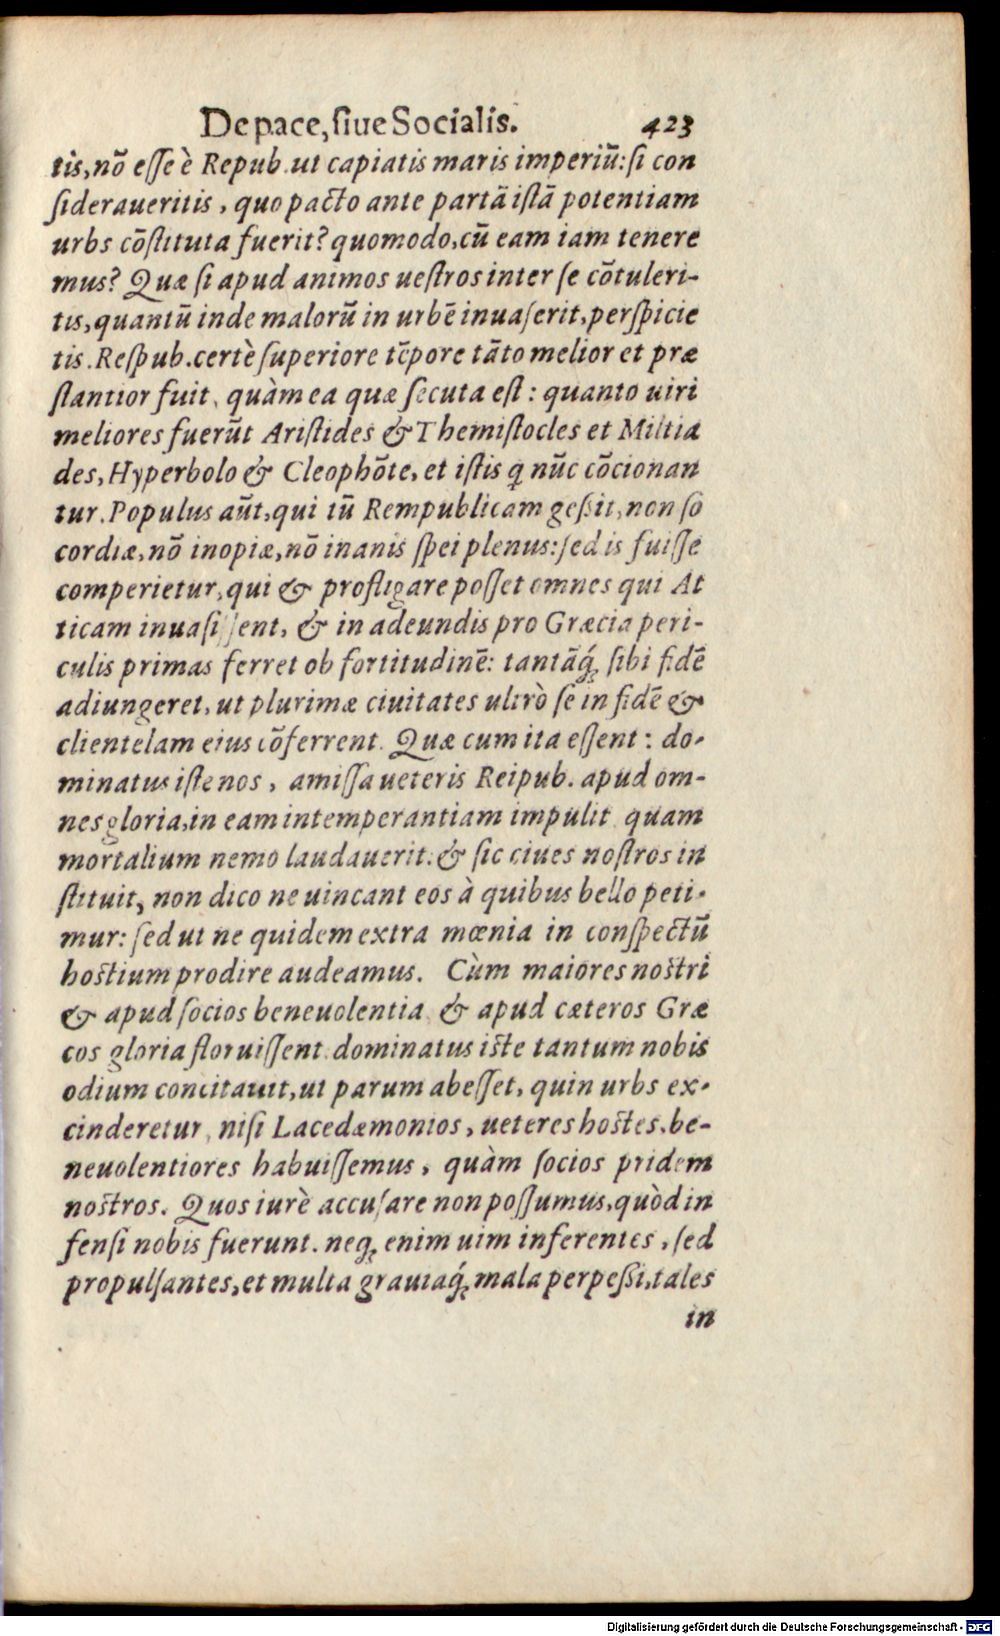 De pace, ſiue Socialis. 423
tis, nō eſſe è Repub. ut capiatis maris imperiū: ſi con
ſideraueritis, quo pacto ante partā iſtā potentiam
urbs cōſtituta fuerit? quomodo, cū eam iam tenere
mus? Quæ ſi apud animos ueſtros inter ſe cōtuleri-
tis, quantū inde malorū in urbē inuaſerit, perſpicie
tis. Reſpub. certè ſuperiore tēpore tāto melior et præ
ſtantior fuit, quàm ea quæ ſecuta eſt: quanto uiri
meliores fuerūt Ariſtides & Themiſtocles et Miltia
des, Hyperbolo & Cleophōte, et iſtis q̄ nūc cōcionan
tur. Populus aūt, qui tū Rempublicam geßit, non ſo
cordiæ, nō inopiæ, nō inanis ſpei plenus: ſed is fuiſſe
comperietur, qui & profligare poſſet omnes qui At
ticam inuaſiſſent, & in adeundis pro Græcia peri-
culis primas ferret ob fortitudinē: tantāq́; ſibi fidē
adiungeret, ut plurimæ ciuitates ultrò ſe in fidē &
clientelam eius cōferrent. Quæ cum ita eſſent: do-
minatus iſte nos, amiſſa ueteris Reipub. apud om-
nes gloria, in eam intemperantiam impulit quam
mortalium nemo laudauerit. & ſic ciues noſtros in
ſtituit, non dico ne uincant eos à quibus bello peti-
mur: ſed ut ne quidem extra mœnia in conſpectū
hoſtium prodire audeamus. Cùm maiores noſtri
& apud ſocios beneuolentia & apud cæteros Græ
cos gloria floruiſſent. dominatus iſte tantum nobis
odium concitauit, ut parum abeſſet, quin urbs ex-
cinderetur, niſi Lacedæmonios, ueteres hoſtes, be-
neuolentiores habuiſſemus, quàm ſocios pridem
noſtros. Quos iurè accuſare non poſſumus, quòd in
fenſi nobis fuerunt. neq; enim uim inferentes, ſed
propulſantes, et multa grauiaq́; mala perpeßi, tales
in
Digitalisierung gefördert durch die Deutsche Forschungsgemeinschaft - DFG